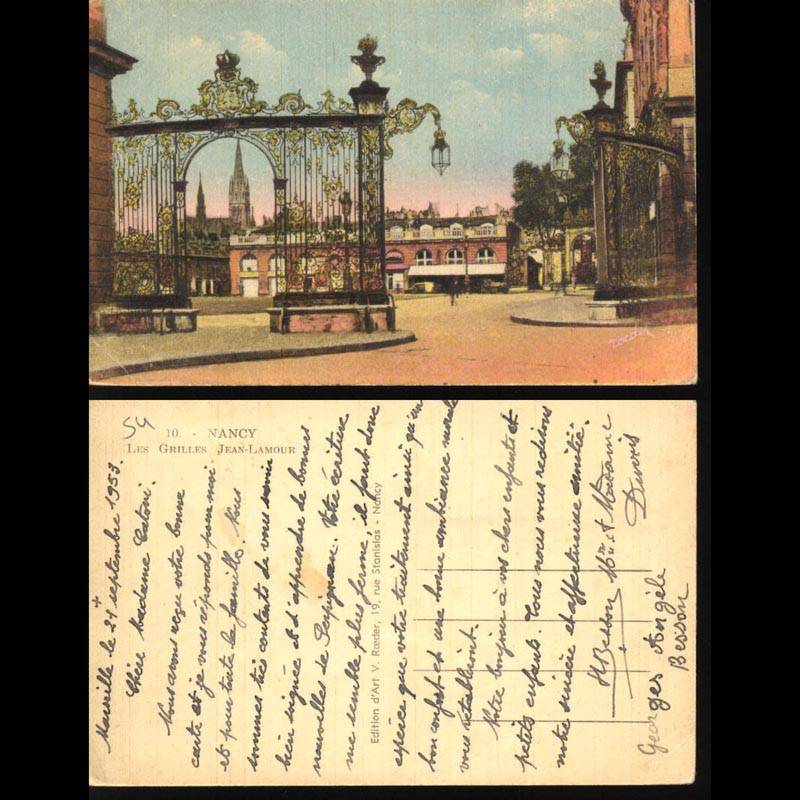 54
10. - NANCY
LES GRILLES JEAN-LAMOUR
Edition d'Art V. Rœder, 19, rue Stanislas - Nancy
le 21 septembre 1953
Chère Madame Catoni.
Nous avons reçu votre bonne
carte et je vous réponds pour moi
et pour toute la famille. Nous
sommes très contents de vous savoir
bien soignée et d'apprendre de bonnes
nouvelles de Perpignan. Votre écriture
me semble plus ferme, il faut donc
espérer que votre traitement ainsi qu'un
bon confort et une bonne ambiance morale
vous rétabliront.
Notre bonjour à vos chers enfants et
petits enfants. Tous nous vous redisons
notre sincère et affectueuse amitié.
HBesson Mr et Madame
Georges Angèle
Besson